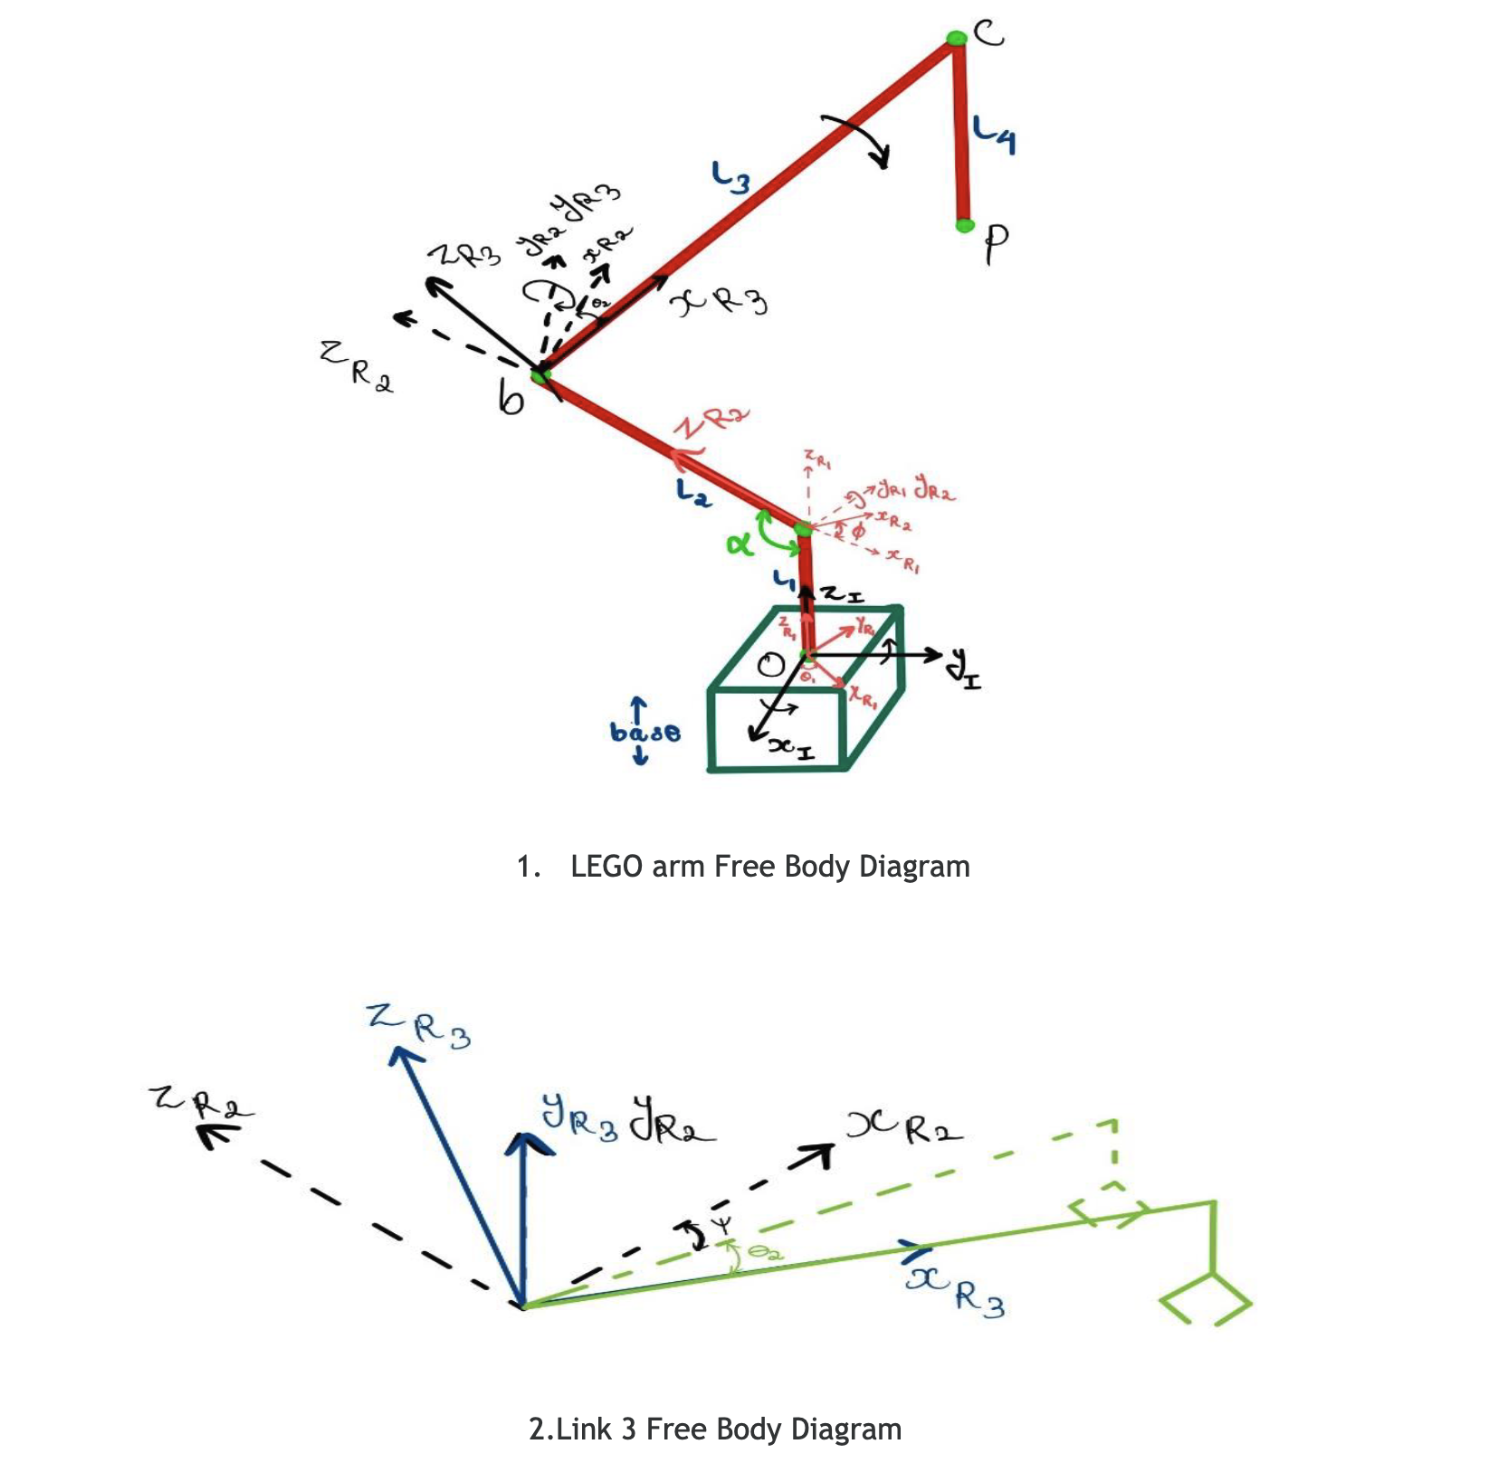 C
L4
P
L3
yR2 yR3
xR2
zR3
θ2
xR3
zR2
b
zR2
L2
zR1
yR1 yR2
xR2
ϕ
xR1
α
L1
zI
zR1
yR1
O
yI
θ1
xR1
base
xI
1. LEGO arm Free Body Diagram
zR3
zR2
yR3 yR2
xR2
ψ
θ2
xR3
2.Link 3 Free Body Diagram